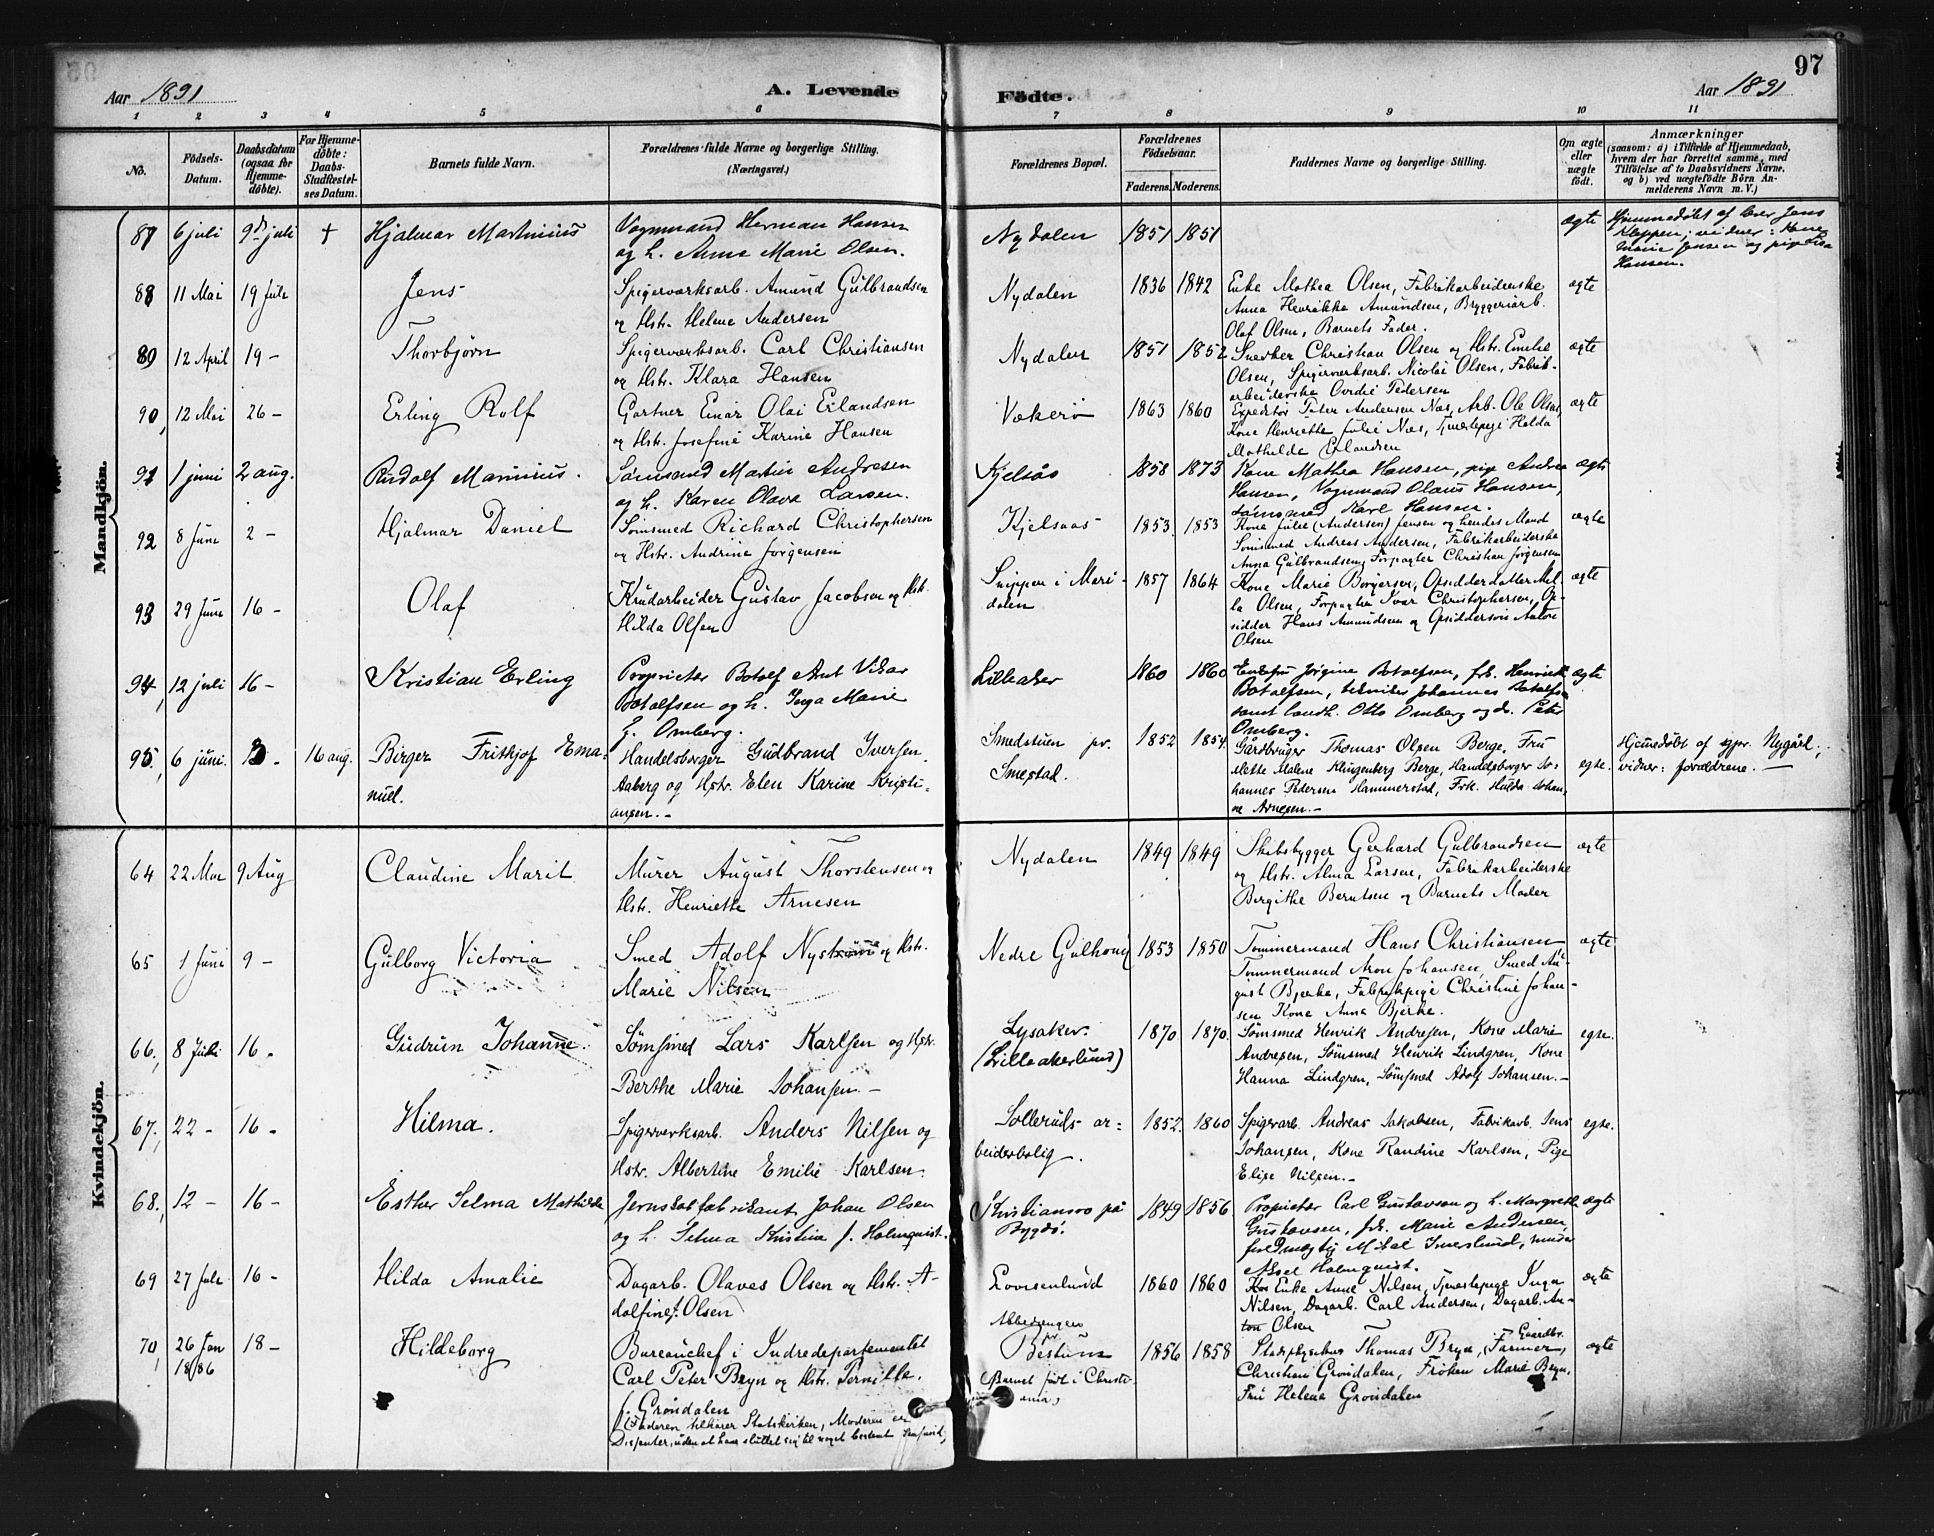 97
Aar 1891
A. Levende
Fødte.
Aar 1891
1 2 3 4 5 6 7 8 9 10 11
No.
Fødsels-
Datum.
Daabsdatum
(ogsaa for
Hjemme-
døbte).
For Hjemme-
døbte:
Daabs-
Stadfæstel-
ses Datum.
Barnets fulde Navn.
Forældrenes fulde Navne og borgerlige Stilling.
(Næringsvei.)
Forældrenes Bopæl.
Forældrenes
Fødselsaar.
Faderens. Moderens.
Faddernes Navne og borgerlige Stilling.
Om ægte
eller
uægte
født.
Anmærkninger
(saasom: a) i Tilfælde af Hjemmedaab,
hvem der har forrettet samme, med
Tilføielse af to Daabsvidners Navne,
og b) ved uægtefødte Børn An-
melderens Navn m. V.)
Mandkjön.
87 6 juli 9de juli + Hjalmar Martinius
Vognmand Herman Hansen
og h. Anna Marie Olsen.
Nydalen 1851 1851
ægte
Hjemmedøbt af Jens
Kleppen; vidner: Kone
Marie Jensen og pige
Hansen.
88 11 Mai 19 Juli Jens
Spigerværksarb. Amund Gulbrandsen
og Hstr. Helene Andersen
Nydalen 1836 1842
Enke Mathea Olsen, Fabrikarbeiderske
Anna Henrikke Amundsen, Bryggeriarb.
Olaf Olsen, Barnets Fader.
ægte
89 12 April 19 – Thorbjørn
Spigerværksarb. Carl Christiansen
og Hstr. Klara Hansen
Nydalen 1851 1852
Snedker Christian Olsen og Hstr. Emelie
Olsen, Spigerværksarb. Nicolai Olsen, Fabrik-
arbeiderske Ovidie Pedersen
ægte
90, 12 Mai 26 – Erling Rolf
Gartner Einar Olai Erlandsen
og Hstr. Josefine Karine Hansen
Vækerø 1863 1860
Expeditør Peter Andersen Næs, Arb. Ole Olsen,
Kone Henriette Julie Næs, Tjenestepige Hulda
Mathilde Erlandsen
ægte
91 1 juni 2 aug. Rudolf Marinius.
Sømsmed Martin Andresen
og h. Karen Olava Larsen.
Kjelsås 1858 1873
Kone Mathea Hansen, pige Andrea
Hansen, Vognmand Olaus Hansen,
sømsmed Karl Hansen.
ægte
92 8 Juni 2 – Hjalmar Daniel
Sømsmed Richard Christophersen
og Hstr. Andrine Jørgensen
Kjelsaas 1853 1853
Kone Julie (Andersen) Jensen og hendes Mand
Sømsmed Andreas Andersen, Fabrikarbeiderske
Anna Gulbrandsen, Forpagter Christian Jørgensen
ægte
93 29 Juni 16 – Olaf
Krudarbeider Gustav Jacobsen og Hstr.
Hilda Olsen
Snippen i Mari-
dalen
1857 1864
Kone Marie Borgersen, Opsidderdatter Mil-
la Olsen, Forpagter Ivar Christophersen, Op-
sidder Hans Amundsen og Opsiddersøn Anton
Olsen
ægte
94, 12 juli 16 – Kristian Erling
Proprietær Botolf Arnt Vikar
Botolfsen og h. Inga Marie
f. Omberg.
Lilleaker 1860 1860
Enkefru Jørgine Botolfsen, frk. Henrik
Botolfsen, tekniker Johannes Botolfsen
samt landh. Otto Omberg og do. Peter
Omberg.
ægte
95, 6 juni. 16 aug. Birger Frithjof Ema-
nuel.
Handelsborger Gudbrand Iversen
Aaberg og Hstr. Elen Karine Kristi-
ansen. –
Smedstuen pr.
Smestad.
1852 1854.
Gårdbruger Thomas Olsen Berge, Fru
Mette Malene Klingenberg Berge, Handelsborger Jo-
hannes Pedersen Hammerstad, Frk. Hulda Johan-
ne Arnesen. –
egte.
Hjemedøbt af Nygård.
vidner: forældrene. –
Kvindekjön.
64 22 Mai 9 Aug Claudine Marit
Murer August Thorstensen og
Hstr. Henriette Arnesen
Nydalen 1849 1849
Skibsbygger Gerhard Gulbrandsen
og Hstr. Alma Larsen, Fabrikarbeiderske
Birgithe Berntsen og Barnets Moder
ægte
65 1 Juni 9 – Gulborg Victoria
Smed Adolf Nystrøm og Hstr.
Marie Nilsen
Nedre Gulhoug 1853 1850
Tømmermand Hans Christiansen
Tømmermand Aron Johansen, Smed Au-
gust Bjerke, Fabrikpige Christine Johan-
sen Kone Anna Bjerke.
ægte
66., 8 Juli 16 – Gudrun Johanne.
Sømsmed Lars Karlsen og Hstr.
Berthe Marie Johansen –
Lysaker.
(Lilleakerlund)
1870 1870
Sømsmed Henrik Andresen, Kone Marie
Andresen, Sømsmed Henrik Lindgren, Kone
Hanna Lindgren, Sømsmed Adolf Johansen. –
egte.
67., 22 – 16 – Hilma.
Spigerverksarb. Anders Nilsen og
Hstr. Albertine Emilie Karlsen.
Solleruds ar-
beiderbolig.
1852. 1860
Spigerarb. Andreas Jakobsen, Fabrikarb. Jens
Johansen, Kone Randine Karlsen, Pige
Elise Nilsen. –
egte.
68., 12 – 16 – Esther Selma Mathilde
Jernskabfabrikant Johan Olsen
og h. Selma Kristine f. Holmquist.
Kristiansro på
Bygdø.
1849 1856
Proprietær Carl Gustavson og h. Margrethe
Gustavsen, frk. Marie Andersen,
fuldmægtig Mikal Smerslund,
Aksel Holmquist.
ægte
69 27 Juli 16 – Hilda Amalie
Dagarb. Olaves Olsen og Hstr. A-
dolfine f. Olsen
Lovisenlund 1860 1860
Enke Anne Nilsen, Tjenestepige Inga
Nilsen, Dagarb. Carl Andersen, Dagarb. An-
ton Olsen
ægte
70, 26 Jan 18 – Hildeborg
1886
Bureauchef i Indredepartementet
Carl Peter Bryn og Hstr. Pernille
f. Grøndalen
(Faderen tilhører Statskirken, Moderen er
Dissenter, uden at have sluttet sig til noget bestemt Samfund)
Abbedengen
pr.
Bestum
(Barnet født i Christi-
ania)
1856 1858
Stadsphysikus Thomas Bryn, (Farmer) Gaardbr.
Christian Grøndalen, Frøken Marie Bryn,
Fru Helena Grøndalen
ægte